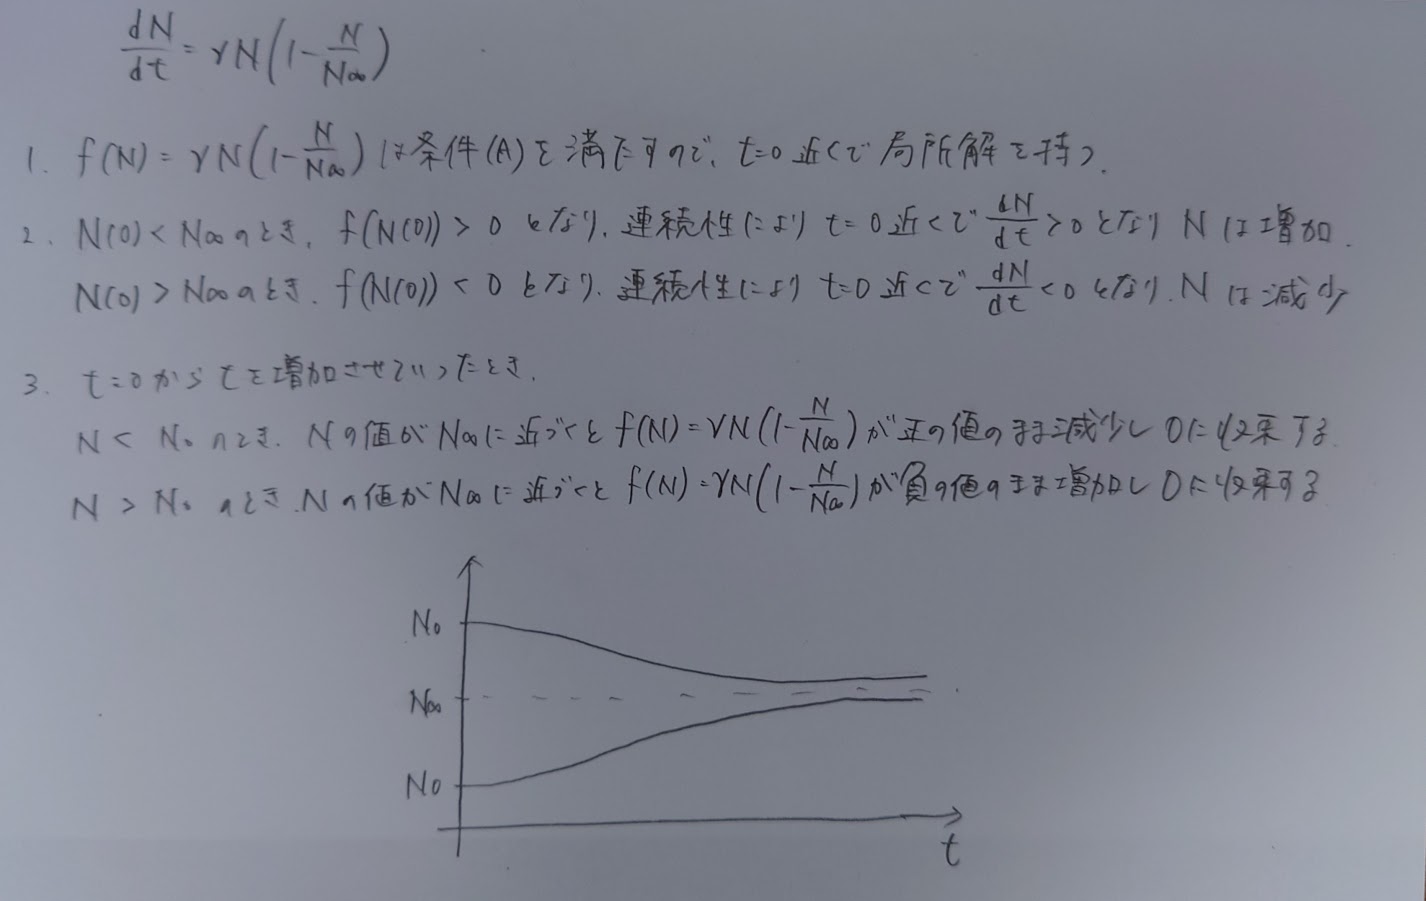 dN/dt = rN(1-N/N∞)
1. f(N) = rN(1-N/N∞) は条件(A)を満たすので、t=0近くで局所解を持つ.
2. N(0)<N∞のとき, f(N(0))>0となり, 連続性により t=0近くで dN/dt>0となり Nは増加.
N(0)>N∞のとき, f(N(0))<0となり, 連続性により t=0近くで dN/dt<0となり, Nは減少
3. t=0からtを増加させていったとき,
N<N₀のとき, Nの値がN∞に近づくと f(N)=rN(1-N/N∞)が正の値のまま減少し0に収束する.
N>N₀のとき, Nの値がN∞に近づくと f(N)=rN(1-N/N∞)が負の値のまま増加し0に収束する
N₀
N∞
N₀
t